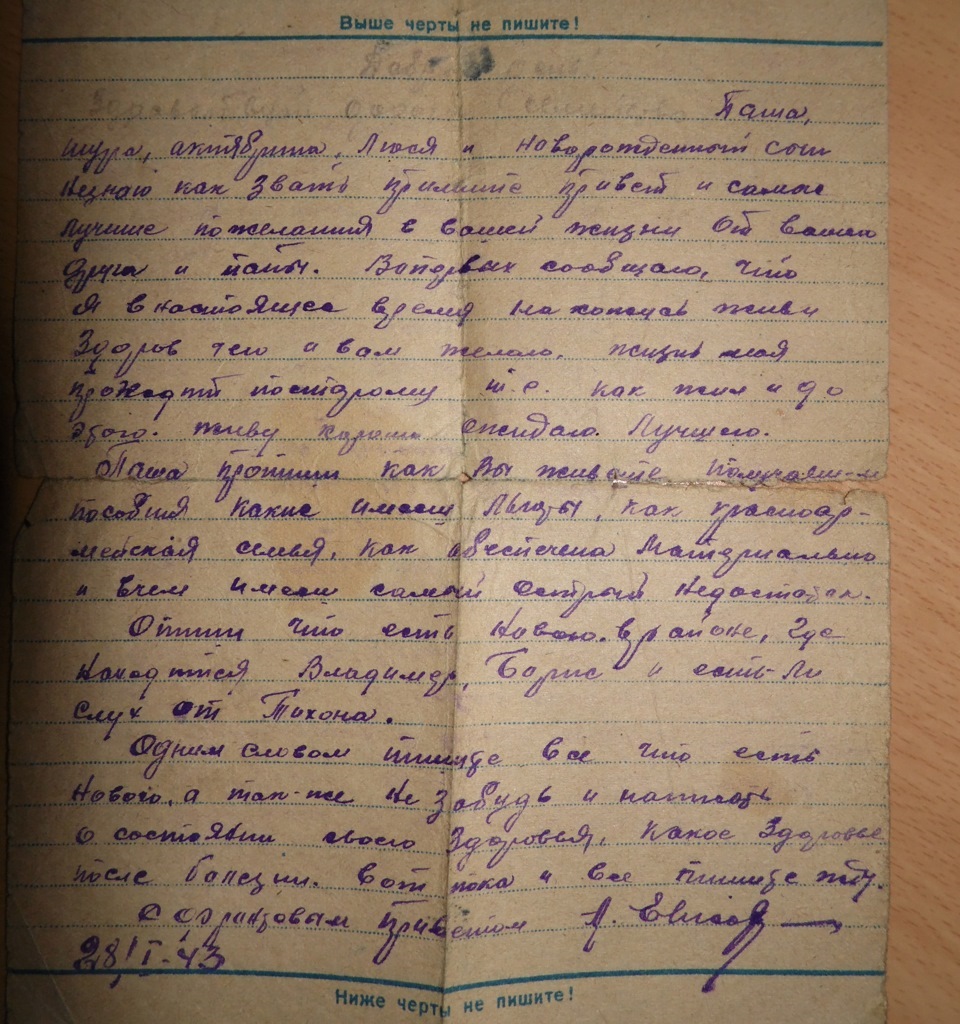 Выше черты не пишите!
Добрый день!
Здравствуй дорогое семейство Паша,
Шура, октябрина, Люся и новорожденный сын
Незнаю как звать примите привет и самые
лучшие пожелания в вашей жизни от вашего
друга и папы. Вопервых сообщаю, что
я в настоящее время нахожусь живи
Здоров чего и вам желаю. жизнь моя
проходит постарому т.е. как жил и до
этого. живу хорошо ожидаю Лучшего.
Паша пропиши как вы живете получаеш-ли
пособия какие имееш льготы, как красноар-
мейская семья, как обеспечена материально
и вчем имееш самый острый недостаток.
Опиши что есть нового в районе, где
находится Владимир, Борис и есть-ли
слух от Тихона.
Одним словом пишите все что есть
нового, а так-же не забудь и написать
о состоянии своего здоровья, какое здоровье
после болезни. вот пока и все пишите жду.
С фронтовым приветом А.
28/I-43
Ниже черты не пишите!